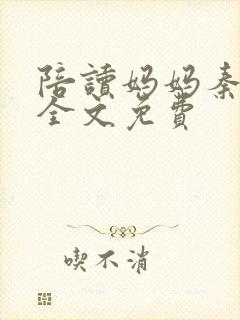 陪讀媽媽秦
全文免費
喫不消